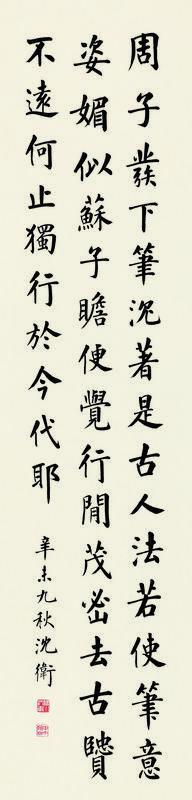 周子發下筆沈著是古人法若使筆意
姿媚似蘇子瞻便覺行閒茂密去古贒
不遠何止獨行於今代耶
辛未九秋沈衛